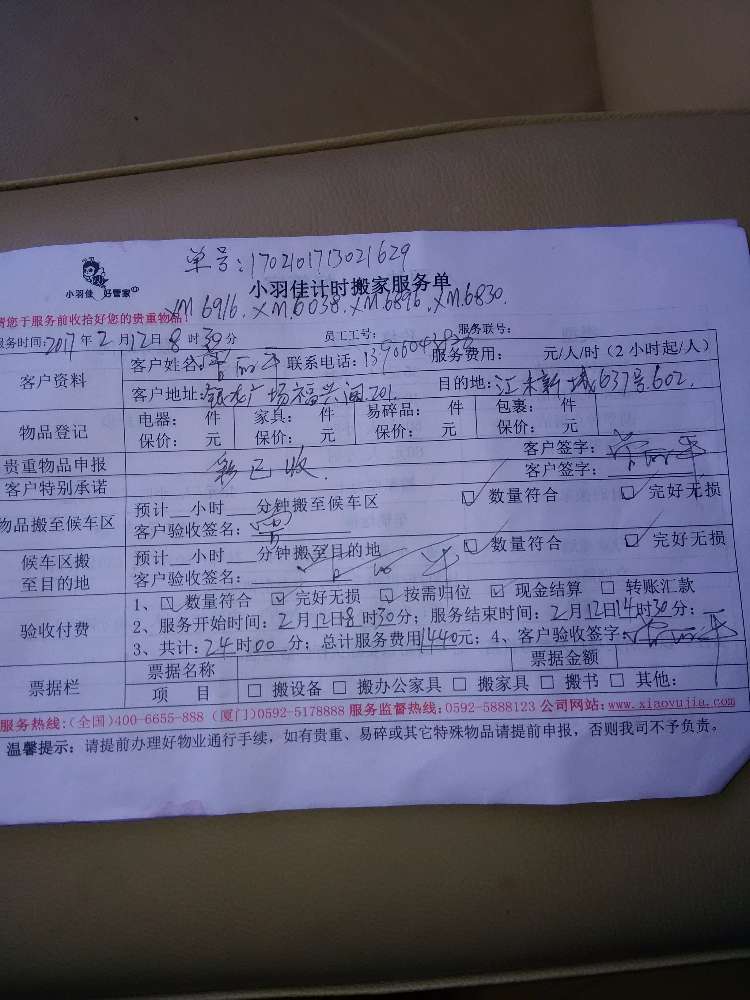 单号:1702101713021629
小羽佳 好管家
小羽佳计时搬家服务单
XM6916.XM6038.XM6896.XM6830.
请您于服务前收拾好您的贵重物品!
服务时间:2017年2月12日8时30分 员工工号: 服务联号:
客户资料 客户姓名: 联系电话: 服务费用: 元/人/时(2小时起/人)
客户地址:银龙广场福兴阁.201. 目的地:江禾新城637号602.
物品登记 电器: 件 家具: 件 易碎品: 件 包裹: 件
保价: 元 保价: 元 保价: 元 保价: 元
贵重物品申报 已收 客户签字:
客户特别承诺 客户签字:
物品搬至候车区 预计__小时__分钟搬至候车区 数量符合 完好无损
客户验收签名:
候车区搬至目的地 预计__小时__分钟搬至目的地 数量符合 完好无损
客户验收签名:
验收付费 1、数量符合 完好无损 按需归位 现金结算 转账汇款
2、服务开始时间:2月12日8时30分;服务结束时间:2月12日14时30分;
3、共计:24时00分;总计服务费用1440元;4、客户验收签字:
票据栏 票据名称 票据金额
项 目 搬设备 搬办公家具 搬家具 搬书 其他:
服务热线:(全国)400-6655-888 (厦门)0592-5178888 服务监督热线:0592-5888123 公司网站:www.xiaoyujia.com
温馨提示:请提前办理好物业通行手续,如有贵重、易碎或其它特殊物品请提前申报,否则我司不予负责。